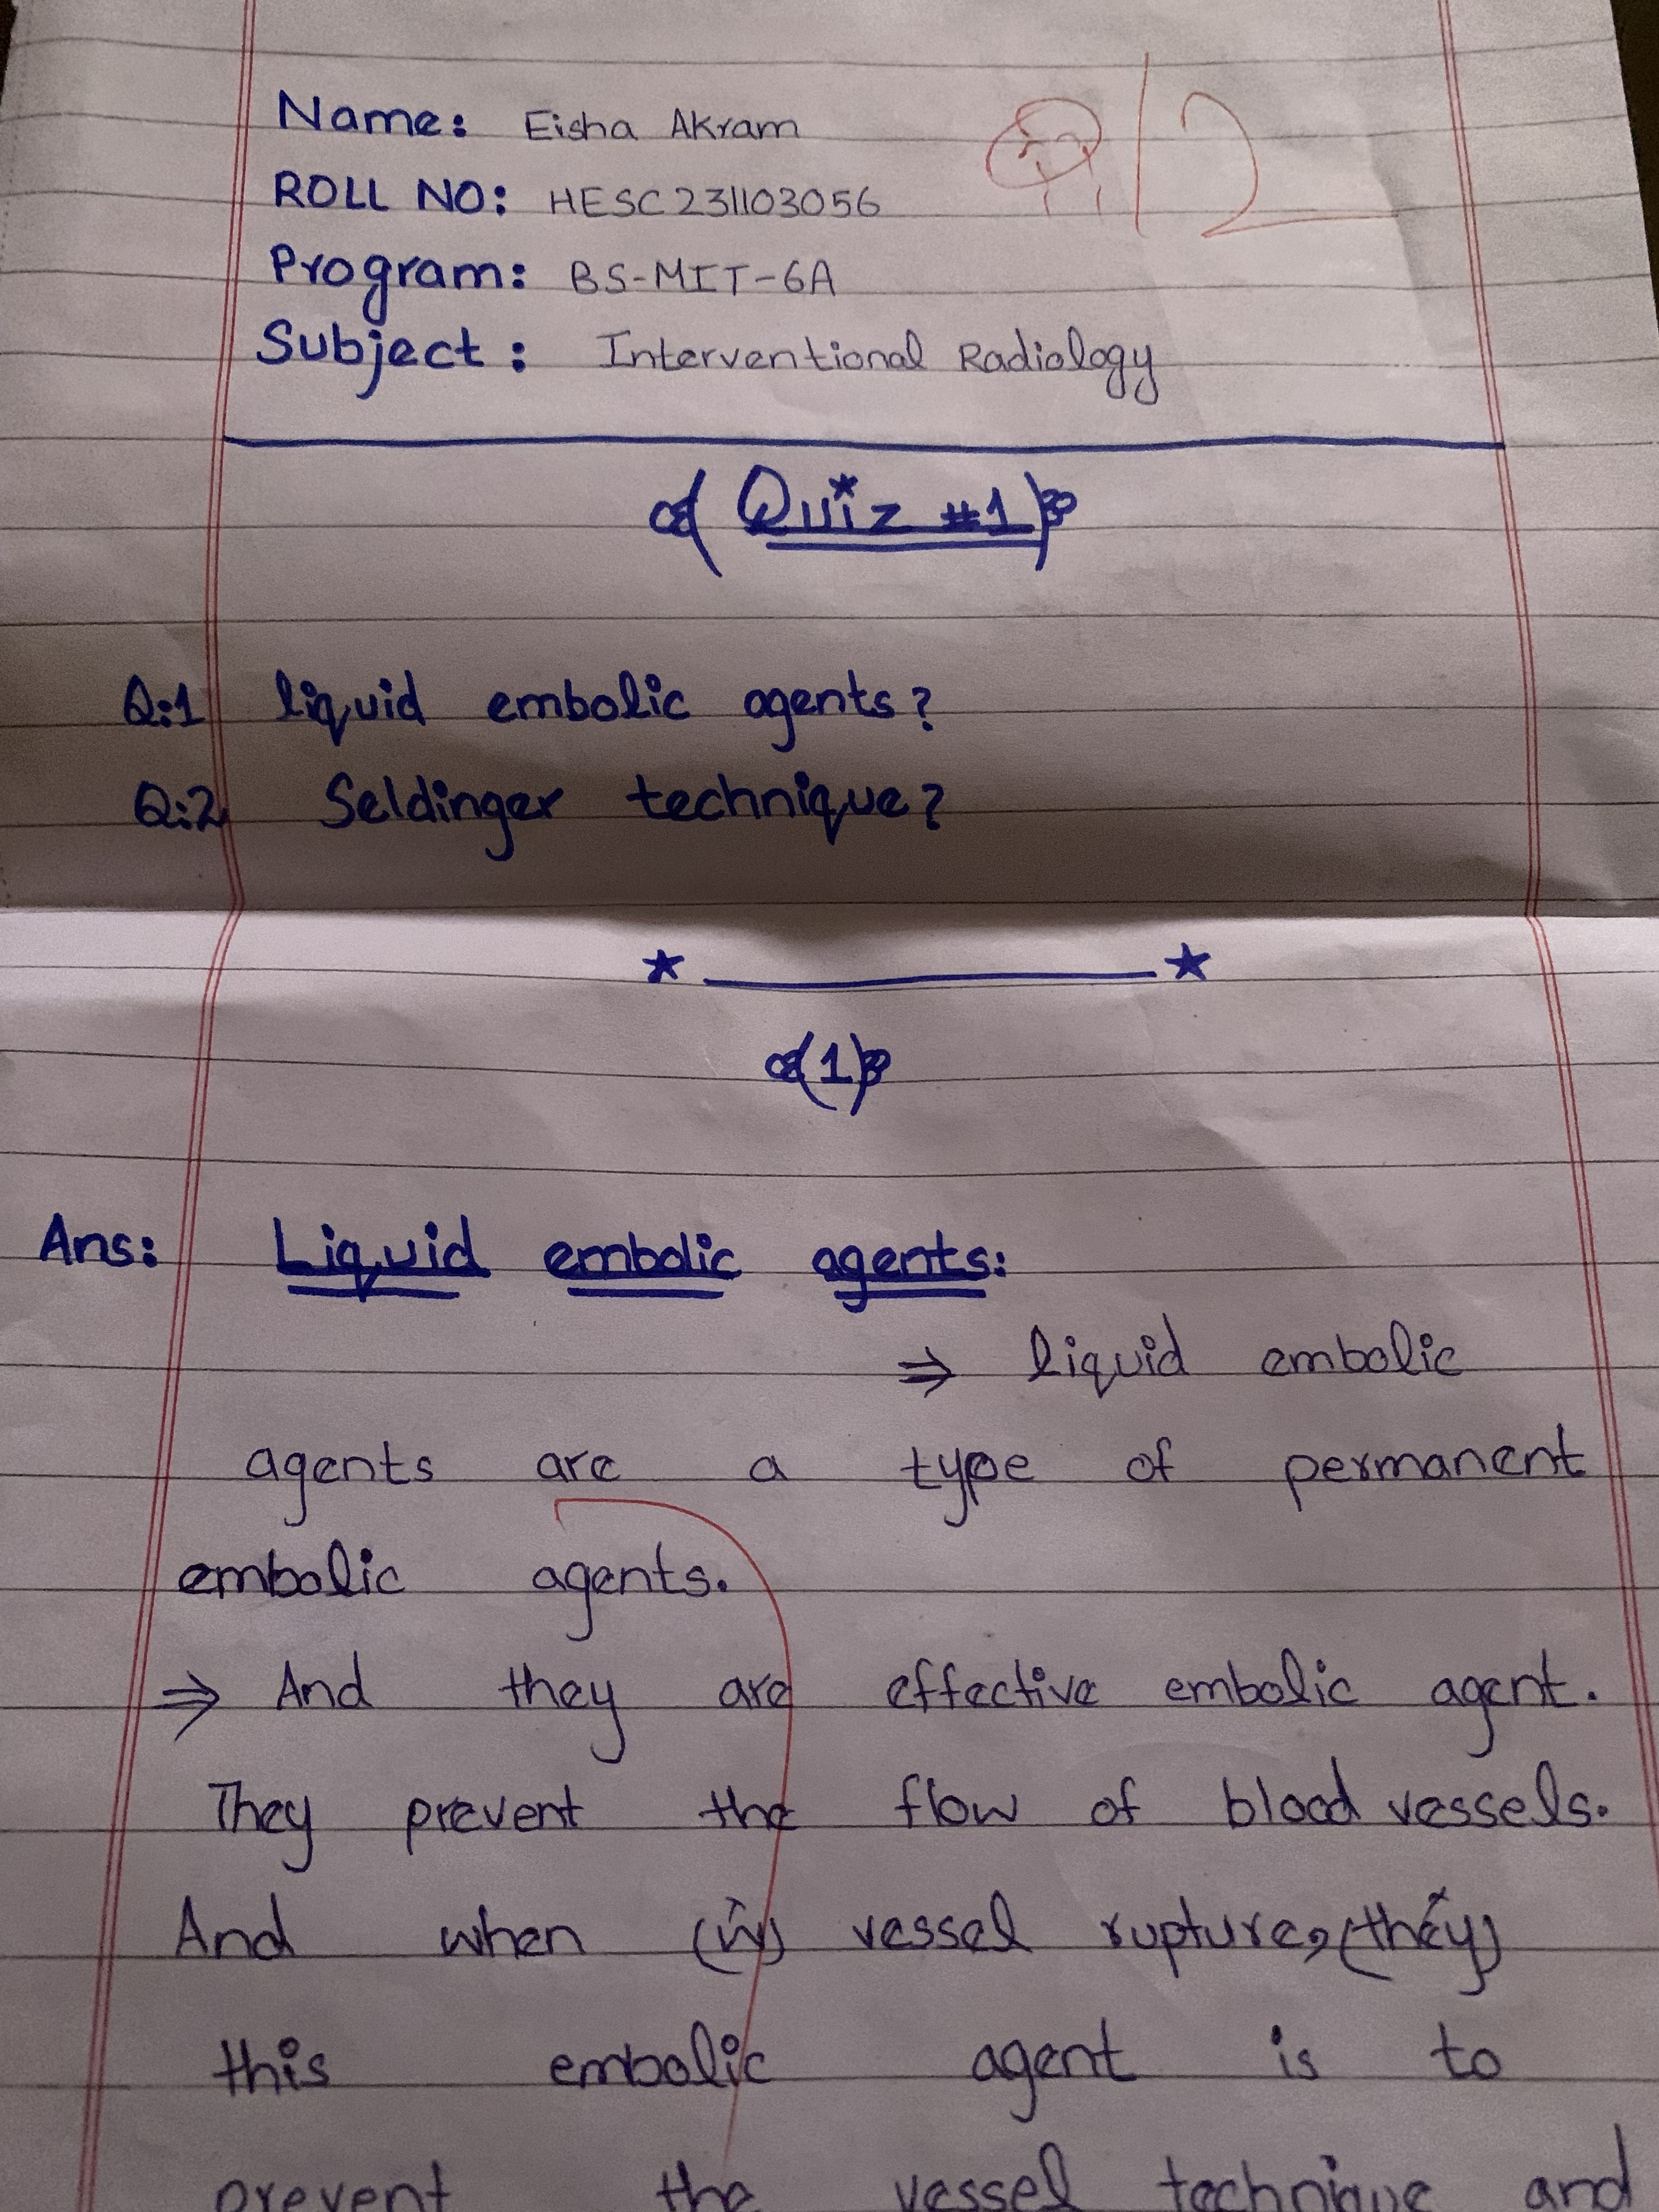 Name: Eisha Akram
ROLL NO: HESC231103056
Program: BS-MIT-6A
Subject: Interventional Radiology
(Quiz #1)
Q:1 liquid embolic agents?
Q:2 Seldinger technique?
(1)
Ans: Liquid embolic agents:
⇒ liquid embolic
agents are a type of permanent
embolic agents.
⇒ And they are effective embolic agent.
They prevent the flow of blood vessels.
And when vessel rupture, (they)
this embolic agent is to
prevent the vessel technique and